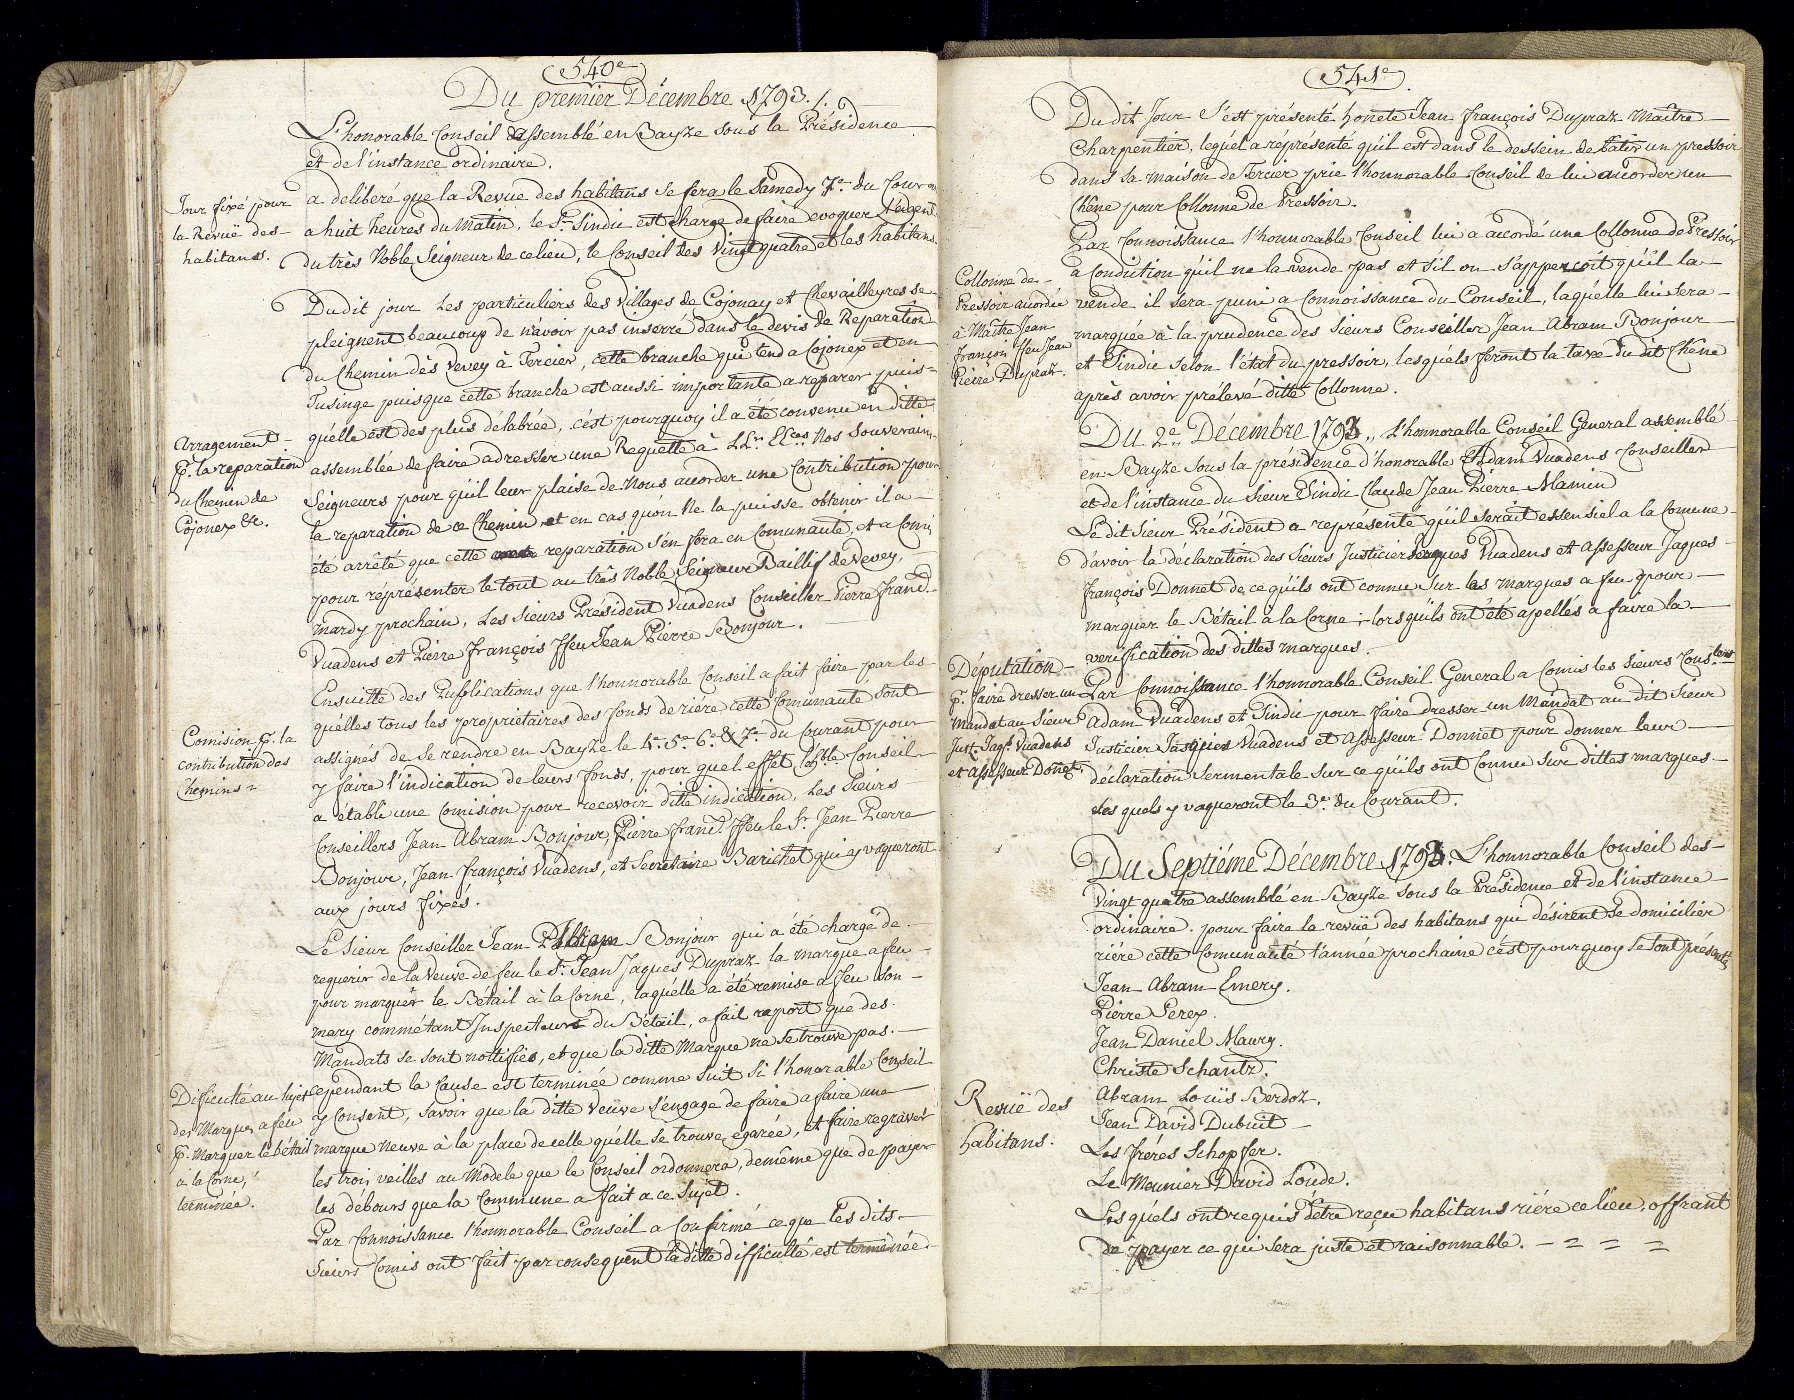 540e
Du premier Décembre 1793./.
L'honorable Conseil assemblé en Bayze sous la Présidence
et de l'instance ordinaire.
Jour fixé pour
la Revuë des
habitans.
a deliberé que la Revue des habitans se fera le Samedy 7e. du Cour
a huit heures du Matin, le Sr. Sindic est charge de faire evoquer
du très Noble Seigneur de ce lieu, le Conseil des Vingt quatre et les habitans.
Dudit jour Les particuliers des Villages de Cojonay et Chevailleyres se
pleignent beaucoup de n'avoir pas inserré dans le devis de Reparation
du Chemin dès Vevey à Tercier, cette branche qui tend a Cojonex et en
Tusinge puisque cette branche est aussi importante a reparer puis=
Arragement
p. la reparation
du Chemin de
Cojonex &c.
qu'elle est des plus délabrée, c'est pourquoy il a été convenu en ditte
assemblée de faire adresser une Requette à LLrs. EEces. Nos Souverains
Seigneurs pour qu'il leur plaise de Nous accorder une Contribution pour
la reparation de ce Chemin et en cas qu'on Ne la puisse obtenir il a
été arrêté que cette reparation s'en fera en Comunauté, et a Comis
pour réprésenter le tout au très Noble Seigneur Baillif de Vevey,
mardy prochain, Les Sieurs Président Vuadens Conseiller Pierre Franc.
Vuadens et Pierre François ffeu Jean Pierre Bonjour.
Comision p. la
contribution des
Chemins =
Ensuitte des Publications que l'honnorable Conseil a fait faire par les
quelles tous les proprietaires des fonds de riere cette Comunauté sont
assignés de se rendre en Bayze le 4e. 5e. 6e. & 7e. du Courant pour
y faire l'indication de leurs fonds, pour quel effet l'hble Conseil
a établi une Comision pour recevoir ditte indication, Les Sieurs
Conseillers Jean Abram Bonjour, Pierre Franc. ffeu le Sr. Jean Pierre
Bonjour, Jean François Vuadens, et Secretaire Barichet qui y vaqueront
aux jours fixés.
Le Sieur Conseiller Jean Abram Bonjour qui a été chargé de
requerir de la Veuve de feu le Sr. Jean Jaques Dupraz la marque a feu
pour marquer le Bétail à la Corne, laquelle a été remise a feu son
mary commétant Inspecteur du Bétail, a fait raport que des
Mandats se sont nottifiés, et que la ditte Marque ne se trouve pas.
Dificulté au Sujet
des Marques a feu
p. Marquer le bétail
a la Corne,
terminée.
cependant la Cause est terminée comme suit Si l'honorable Conseil
y Consent, savoir que la ditte Veuve s'engage de faire a faire une
marque neuve à la place de celle qu'elle se trouve egarée, et faire regraver
les trois veilles au Modele que le Conseil ordonnera, de même que de payer
les débours que la Commune a fait a ce Sujet.
Par Connoissance l'honnorable Conseil a Confirmé ce que Les dits
Sieurs Comis ont fait par consequent laditte difficulté est terminée
541e
Dudit Jour S'est présenté honête Jean François Dupraz Maître
Charpentier, lequel a représenté qu'il est dans le dessein de batir un pressoir
dans sa maison de Tercier prie l'honnorable Conseil de lui accorder un
Chêne pour Collonne de Pressoir.
Collonne de
Pressoir accordée
à Maître Jean
François ffeu Jean
Pierre Dupraz.
Par Connoissance l'honnorable Conseil lui a accordé une Collonne de Pressoir
a Condition qu'il ne la vende pas et Sil on s'apperçoit qu'il la
vende il sera puni a Connoissance du Conseil, laquelle lui sera
marquée à la prudence des Sieurs Conseiller Jean Abram Bonjour
et Sindic Selon l'état du pressoir, lesquels feront la taxe du dit Chêne
après avoir prélevé ditte Collonne.
Du 2e. Décembre 1793, L'honnorable Conseil General assemblé
en Bayze sous la présidence d'honorable Adam Vuadens Conseiller
et de l'instance du Sieur Sindic Claude Jean Pierre Mamin
Le dit Sieur Président a représenté qu'il serait essensiel a la Comune
d'avoir la declaration des Sieurs Justicier Jaques Vuadens et Assesseur Jaques
François Donnet de ce qu'ils ont connu sur les marques a feu pour
marquer le Bétail à la Corne, lorsqu'ils ont été apellés a faire la
verification des dittes marques.
Députation
p. faire dresser un
Mandat au Sieur
Just. Jaqs. Vuadens
et Assesseur Donet.
Par Connoissance l'honnorable Conseil General a Comis les Sieurs Conslers
Adam Vuadens et Sindic pour faire dresser un Mandat au dit Sieur
Justicier Jaques Vuadens et Assesseur Donnet pour donner leur
déclaration Sermentale sur ce qu'ils ont Connu Sur dittes marques.
Les quels y vaqueront le 3e. du Courant.
Du Septiéme Décembre 1793. L'honnorable Conseil des
Vingt quatre assemblé en Bayze sous la Présidence et de l'instance
ordinaire. pour faire la revuë des habitans qui désirent se domicilier
riére cette Comunauté l'année prochaine c'est pourquoy se sont présenté
Jean Abram Emery.
Pierre Perex.
Jean Daniel Maury.
Christe Schantz.
Revuë des
habitans.
Abram Louis Berdoz.
Jean David Dubuit
Les fréres Schopfer.
Le Meunier David Loude.
Lesquels ont requis d'être reçu habitans riére ce lieu, offrant
de payer ce qui sera juste et raisonnable.